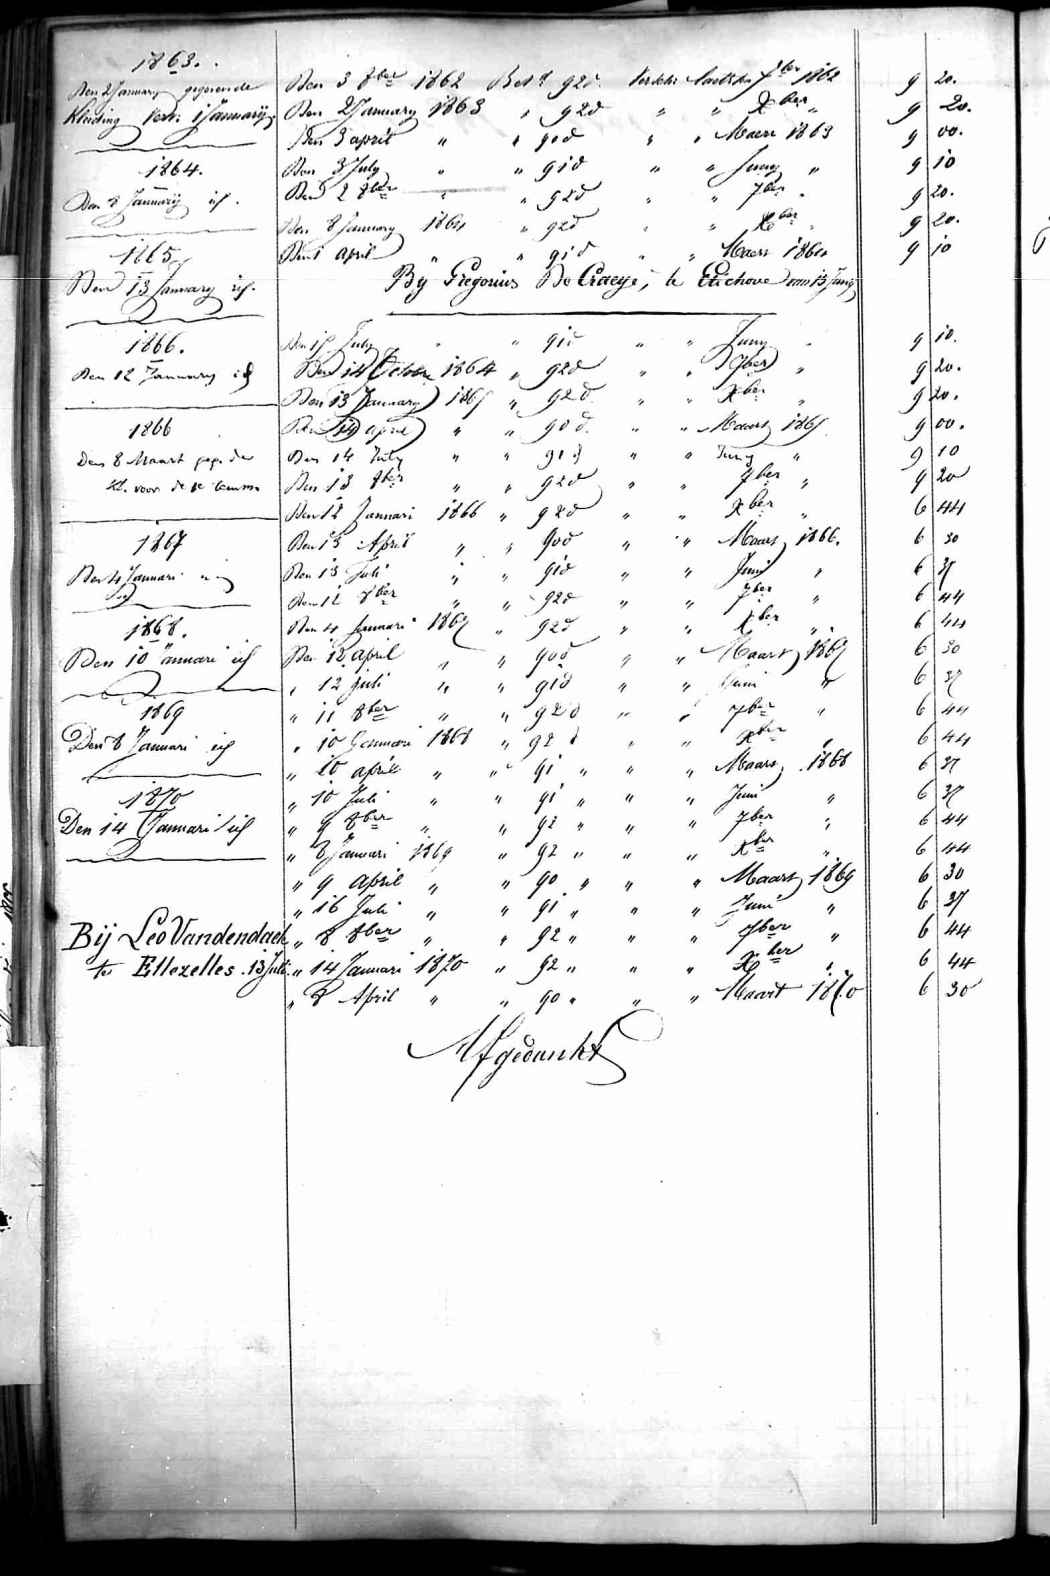 1863.
Den 2 January gegeven de
Kleeding verv. 1 January
1864.
Den 8 January id.
1865
Den 13 January id.
1866.
Den 12 January id
1866
Den 8 Maart geg. de
Kl. voor de 1e Comm.
1867
Den 4 Januari id
1868.
Den 10 Januari id
1869
Den 8 Januari id
1870
Den 14 Januari id
Bij Leo Vandendaele
te Ellezelles. 13 Juli
Den 3 8ber 1862 Bet. 92d. Verschl. 7ber 1862 9 20.
Den 2 January 1863 " 92d " " Xber " 9 20.
Den 3 april " " 90d " " Maert 1863 9 00.
Den 3 July " " 91d " " Juny " 9 10
Den 2 8ber " " 92d " " 7ber " 9 20.
Den 8 January 1864 " 92d " " Xber 9 20.
Den 1 April " " 91d " " Maert 1864 9 10
By Gregorius De Craeye, te Etichove van 13 Juny
Den 15 July " " 91d " " Juny " 9 10.
Den 14 October 1864 " 92d " " 7ber " 9 20.
Den 13 January 1865 " 92d. " " Xber " 9 20.
Den 14 april " " 90d. " " Maart 1865 9 00.
Den 14 July " " 91d " " Juny " 9 10
Den 13 8ber " " 92d " " 7ber " 9 20
Den 12 Januari 1866 " 92d " " Xber " 6 44
Den 13 April " " 90d " " Maart 1866. 6 30
Den 13 Juli " " 91d " " Juni " 6 37
Den 12 8ber " " 92d " " 7ber " 6 44
Den 4 Januari 1867 " 92d " " Xber " 6 44
Den 12 april " " 90d " " Maart 1867 6 30
" 12 juli " " 91d " " Juni " 6 37
" 11 8ber " " 92d " " 7ber " 6 44
" 10 Januari 1868 " 92d " " Xber " 6 44
" 10 april " " 91 " " " Maart 1868 6 37
" 10 Juli " " 91 " " " Juni " 6 37
" 9 8ber " " 92 " " " 7ber " 6 44
" 8 Januari 1869 " 92 " " " Xber " 6 44
" 9 April " " 90 " " " Maart 1869 6 30
" 16 Juli " " 91 " " " Juni " 6 37
" 8 8ber " " 92 " " " 7ber " 6 44
" 14 Januari 1870 " 92 " " " Xber " 6 44
" 8 April " " 90 " " " Maart 1870 6 30
Afgedankt